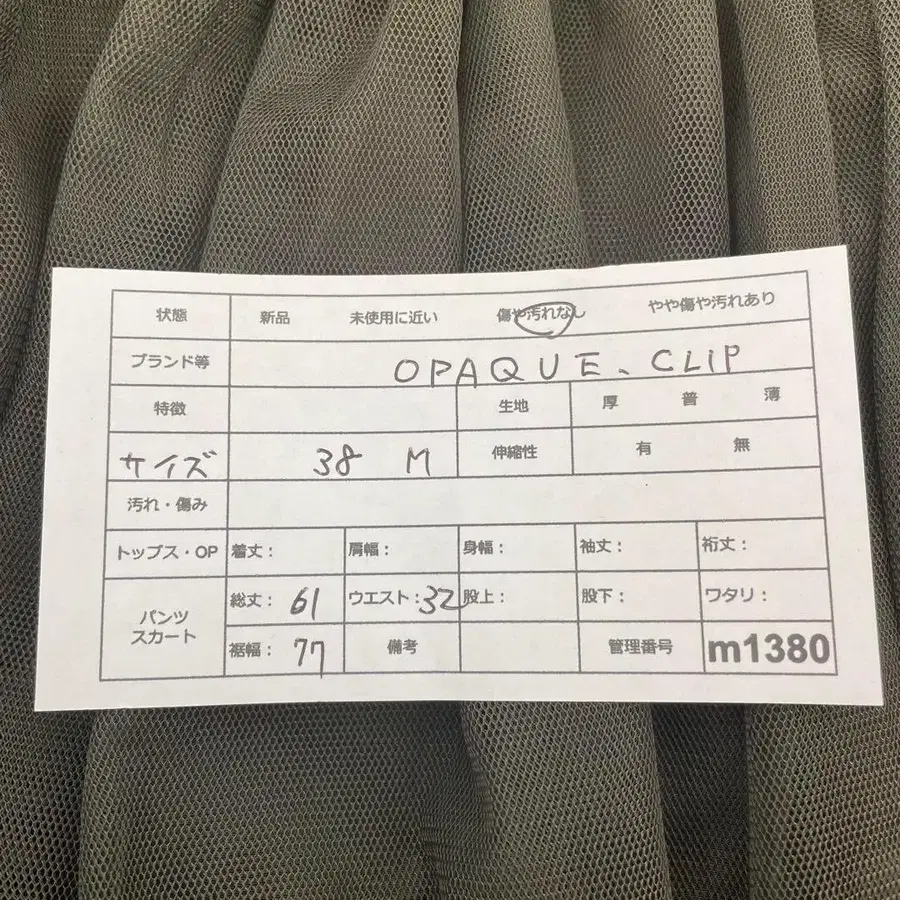 状態 新品 未使用に近い 傷や汚れなし やや傷や汚れあり
ブランド等 OPAQUE、CLIP
特徴 生地 厚 普 薄
サイズ 38 M 伸縮性 有 無
汚れ・傷み
トップス・OP 着丈： 肩幅： 身幅： 袖丈： 裄丈：
パンツ スカート
総丈：61 ウエスト：32 股上： 股下： ワタリ：
裾幅：77 備考 管理番号 m1380